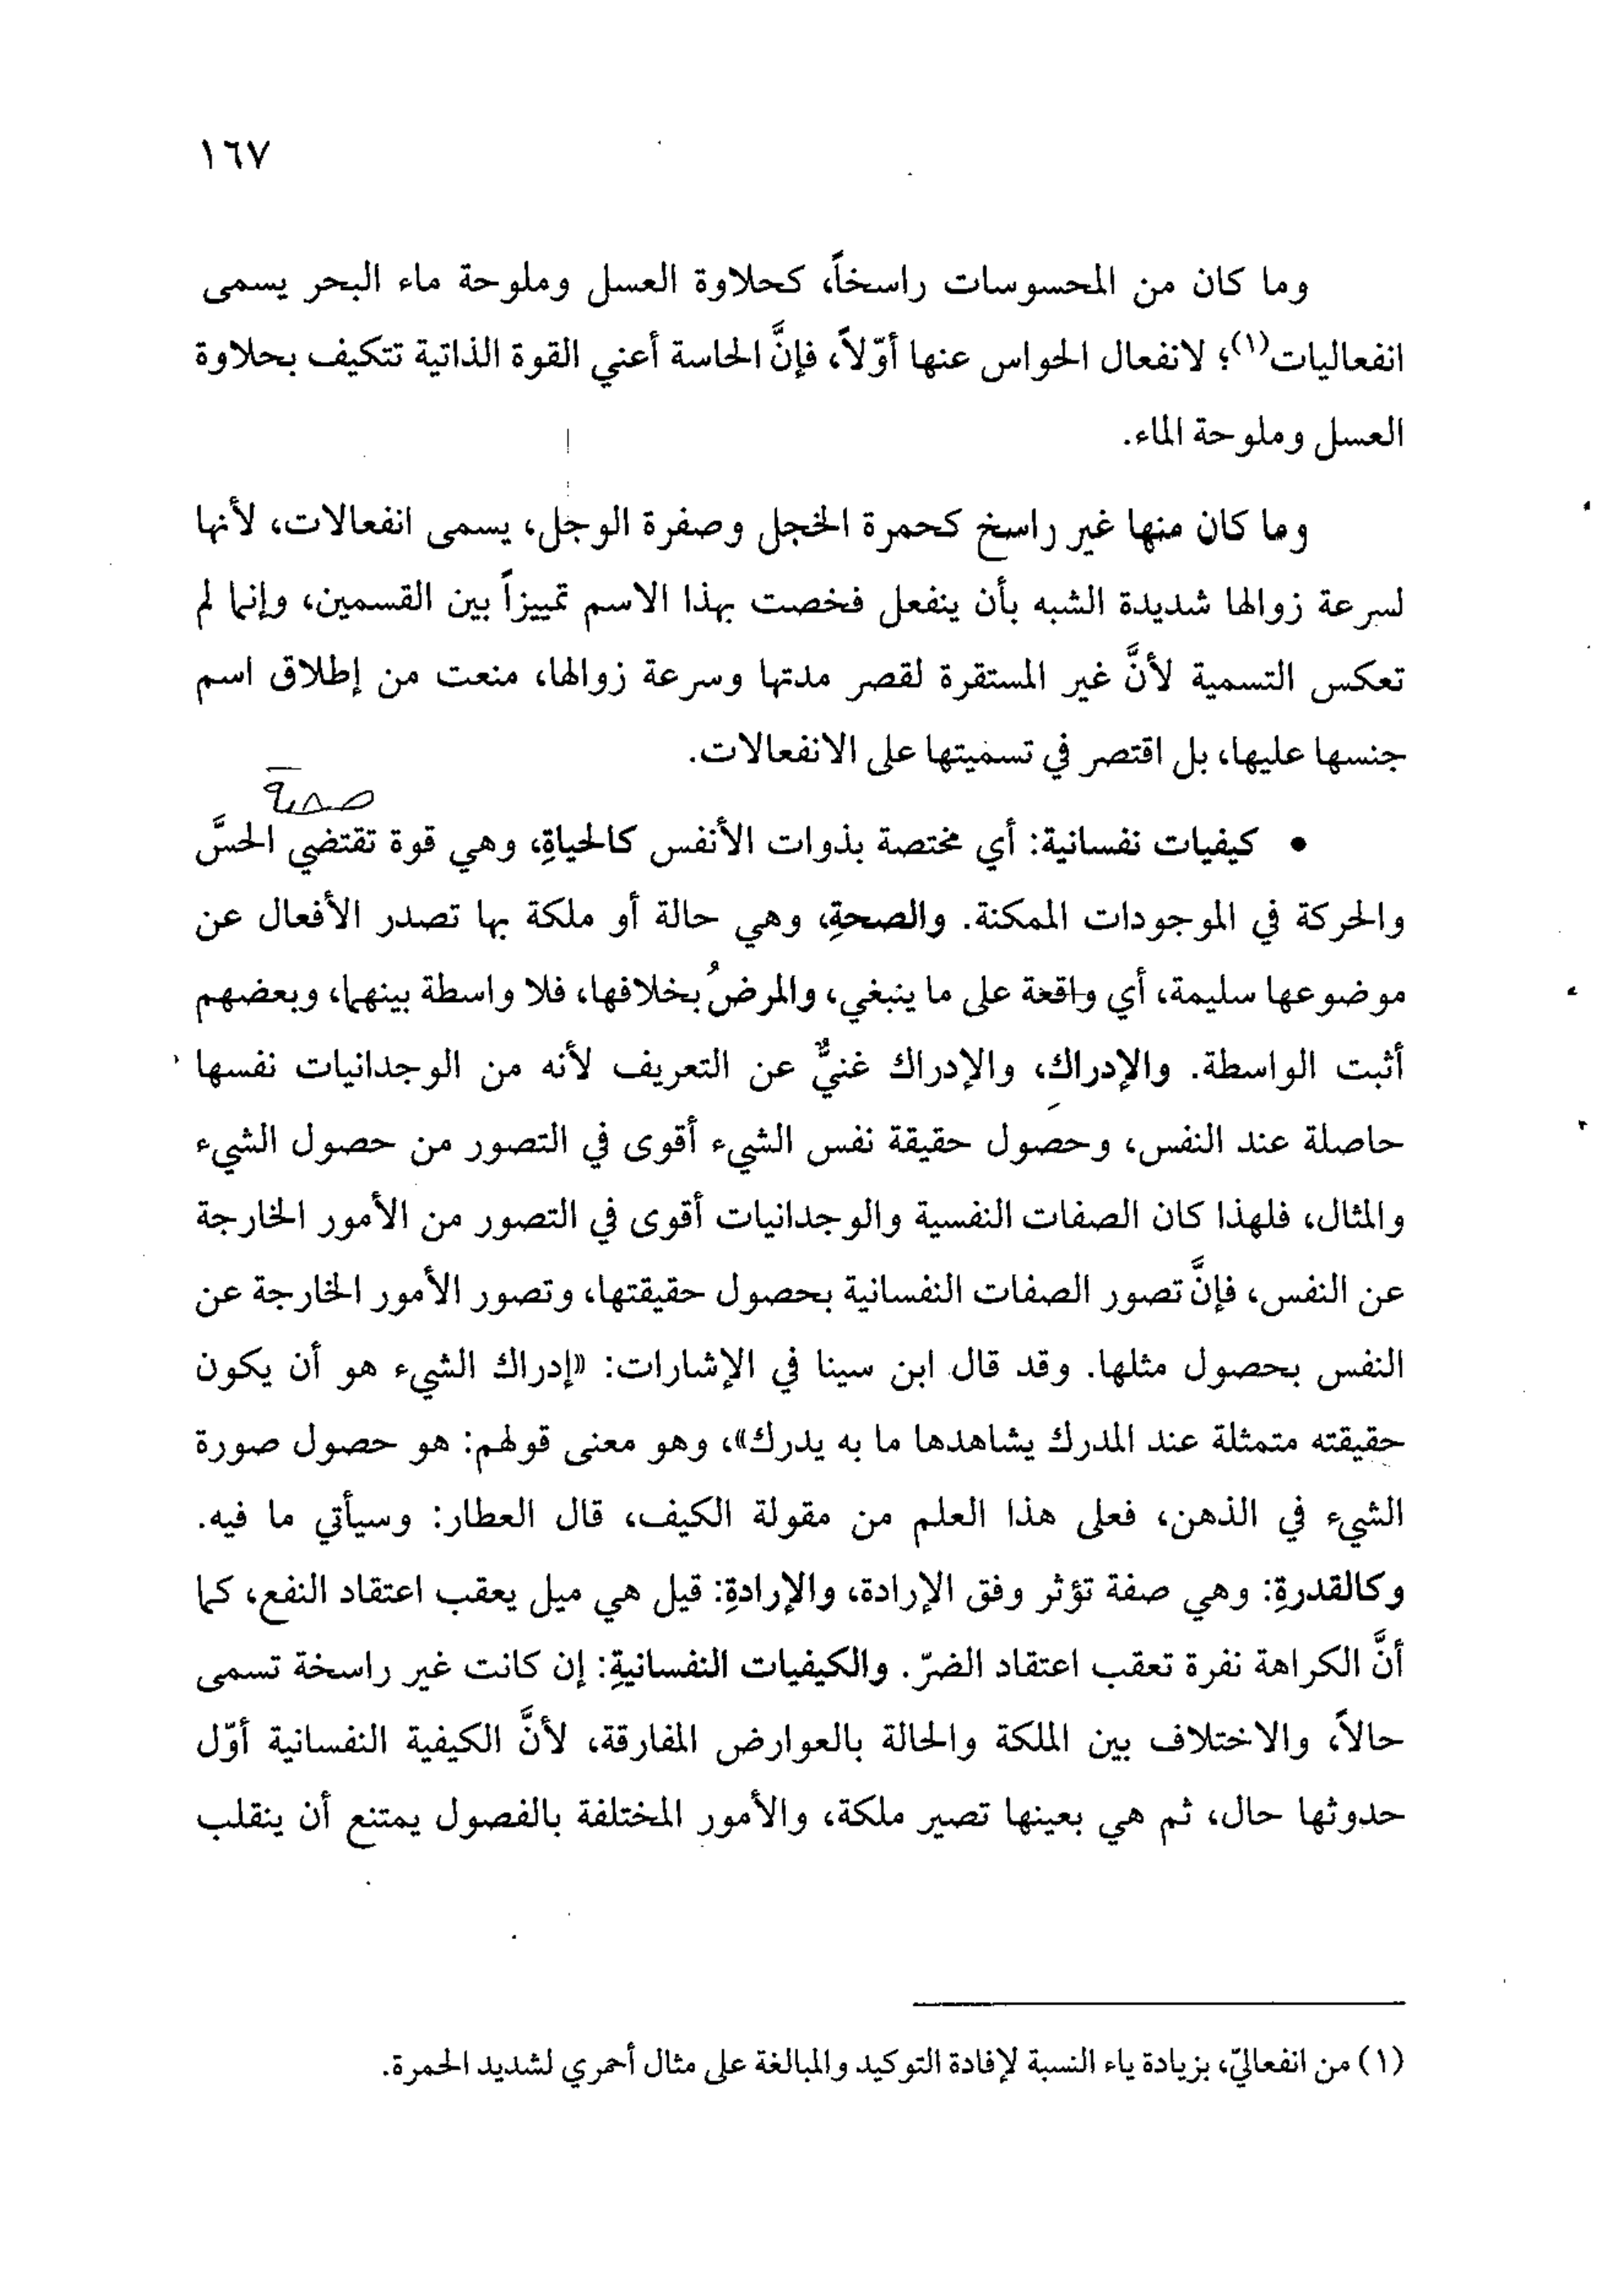 ١٦٧
وما كان من المحسوسات راسخاً، كحلاوة العسل وملوحة ماء البحر يسمى
انفعاليات(١)؛ لانفعال الحواس عنها أوّلاً، فإنَّ الحاسة أعني القوة الذاتية تتكيف بحلاوة
العسل وملوحة الماء.
وما كان منها غير راسخ كحمرة الخجل وصفرة الوجل، يسمى انفعالات، لأنها
لسرعة زوالها شديدة الشبه بأن ينفعل فخصت بهذا الاسم تمييزاً بين القسمين، وإنما لم
تعكس التسمية لأنَّ غير المستقرة لقصر مدتها وسرعة زوالها، منعت من إطلاق اسم
جنسها عليها، بل اقتصر في تسميتها على الانفعالات.
• كيفيات نفسانية: أي مختصة بذوات الأنفس كالحياةِ، وهي قوة تقتضي الحسَّ
والحركة في الموجودات الممكنة. والصحةِ، وهي حالة أو ملكة بها تصدر الأفعال عن
موضوعها سليمة، أي واقعة على ما ينبغي، والمرضُ بخلافها، فلا واسطة بينهما، وبعضهم
أثبت الواسطة. والإدراك، والإدراك غنيٌّ عن التعريف لأنه من الوجدانيات نفسها
حاصلة عند النفس، وحصول حقيقة نفس الشيء أقوى في التصور من حصول الشيء
والمثال، فلهذا كان الصفات النفسية والوجدانيات أقوى في التصور من الأمور الخارجة
عن النفس، فإنَّ تصور الصفات النفسانية بحصول حقيقتها، وتصور الأمور الخارجة عن
النفس بحصول مثلها. وقد قال ابن سينا في الإشارات: «إدراك الشيء هو أن يكون
حقيقته متمثلة عند المدرك يشاهدها ما به يدرك»، وهو معنى قولهم: هو حصول صورة
الشيء في الذهن، فعلى هذا العلم من مقولة الكيف، قال العطار: وسيأتي ما فيه.
وكالقدرةِ: وهي صفة تؤثر وفق الإرادة، والإرادةِ: قيل هي ميل يعقب اعتقاد النفع، كما
أنَّ الكراهة نفرة تعقب اعتقاد الضرّ. والكيفيات النفسانيةِ: إن كانت غير راسخة تسمى
حالاً، والاختلاف بين الملكة والحالة بالعوارض المفارقة، لأنَّ الكيفية النفسانية أوّل
حدوثها حال، ثم هي بعينها تصير ملكة، والأمور المختلفة بالفصول يمتنع أن ينقلب
(١) من انفعاليّ، بزيادة ياء النسبة لإفادة التوكيد والمبالغة على مثال أحمري لشديد الحمرة.